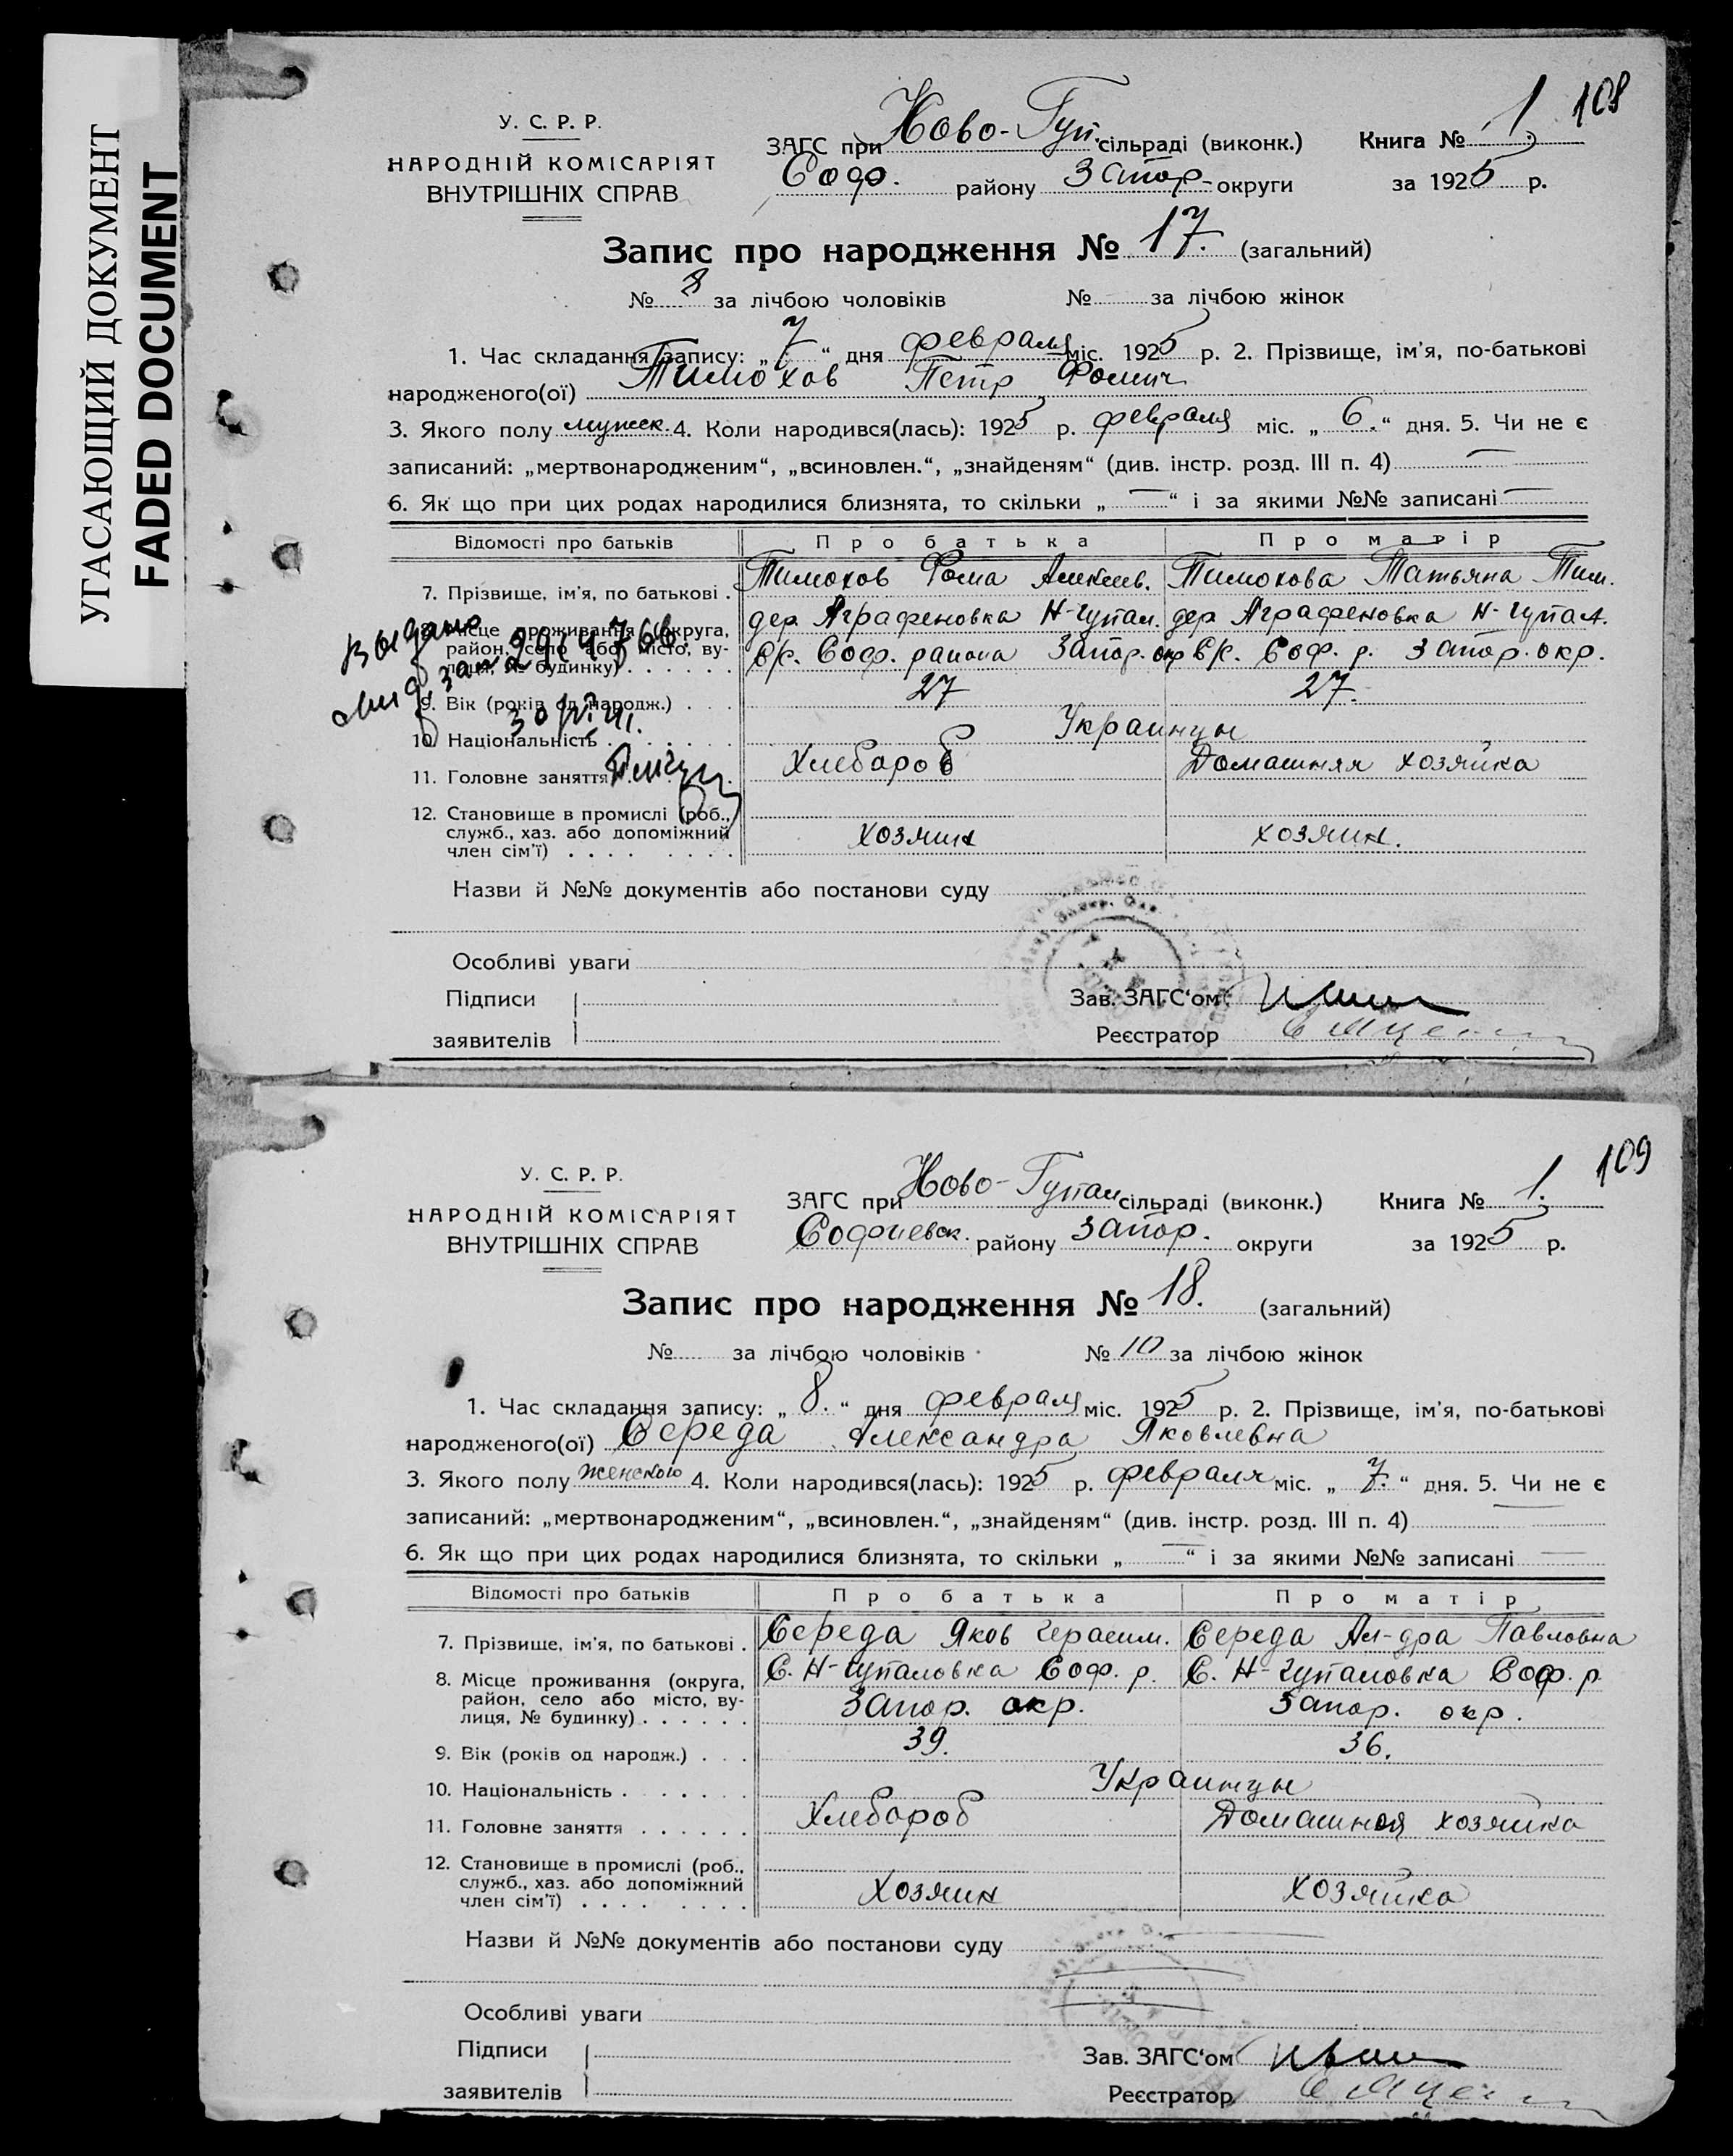 УГАСАЮЩИЙ ДОКУМЕНТ
FADED DOCUMENT
108
У. С. Р. Р.
НАРОДНІЙ КОМІСАРІЯТ
ВНУТРІШНІХ СПРАВ
ЗАГС при Ново-Гуп. сільраді (виконк.) Книга № 1.
Соф. району Запор. округи за 1925 р.
Запис про народження № 17. (загальний)
№ 8 за лічбою чоловіків № за лічбою жінок
1. Час складання запису: „ 7 “ дня февраля міс. 1925 р. 2. Прізвище, ім'я, по-батькові
народженого(ої) Тимохов Петр Фомич
3. Якого полу мужск. 4. Коли народився(лась): 1925 р. февраля міс. „ 6. “ дня. 5. Чи не є
записаний: „мертвонародженим“, „всиновлен.“, „знайденям“ (див. інстр. розд. III п. 4) —
6. Як що при цих родах народилися близнята, то скільки „ — “ і за якими №№ записані —
Відомості про батьків Про батька Про матір
7. Прізвище, ім'я, по батькові . Тимохов Фома Алексеев. Тимохова Татьяна Тим.
8. Місце проживання (округа, дер. Аграфеновка Н-Гупал. дер. Аграфеновка Н-Гупал.
район, село або місто, ву- С/с. Соф. района Запор. окр С/с. Соф. р. Запор. окр.
лиця, № будинку) . . . . . .
Выдано
9. Вік (років од народж.) . . . 27 27.
10. Національність . . . . . . . Украинцы
11. Головне заняття Хлебороб Домашняя хозяйка
12. Становище в промислі (роб.,
служб., хаз. або допоміжний хозяин хозяин.
член сім'ї) . . . . . . . .
Назви й №№ документів або постанови суду
Особливі уваги
Підписи Зав. ЗАГС'ом
заявителів Реєстратор
109
У. С. Р. Р.
НАРОДНІЙ КОМІСАРІЯТ
ВНУТРІШНІХ СПРАВ
ЗАГС при Ново-Гупал сільраді (виконк.) Книга № 1.
Софиевск. району Запор. округи за 1925 р.
Запис про народження № 18. (загальний)
№ за лічбою чоловіків № 10 за лічбою жінок
1. Час складання запису: „ 8. “ дня февраля міс. 1925 р. 2. Прізвище, ім'я, по-батькові
народженого(ої) Середа Александра Яковлевна
3. Якого полу женского 4. Коли народився(лась): 1925 р. февраля міс. „ 7. “ дня. 5. Чи не є
записаний: „мертвонародженим“, „всиновлен.“, „знайденям“ (див. інстр. розд. III п. 4) —
6. Як що при цих родах народилися близнята, то скільки „ — “ і за якими №№ записані —
Відомості про батьків Про батька Про матір
7. Прізвище, ім'я, по батькові . Середа Яков Герасим. Середа Ал-дра Павловна
8. Місце проживання (округа, С. Н-Гупаловка Соф. р. С. Н-Гупаловка Соф. р.
район, село або місто, ву- Запор. окр. Запор. окр.
лиця, № будинку) . . . . . .
9. Вік (років од народж.) . . . 39. 36.
10. Національність . . . . . . . Украинцы
11. Головне заняття . . . . . . Хлебороб Домашняя хозяйка
12. Становище в промислі (роб.,
служб., хаз. або допоміжний Хозяин Хозяйка
член сім'ї) . . . . . . . .
Назви й №№ документів або постанови суду
Особливі уваги
Підписи Зав. ЗАГС'ом
заявителів Реєстратор